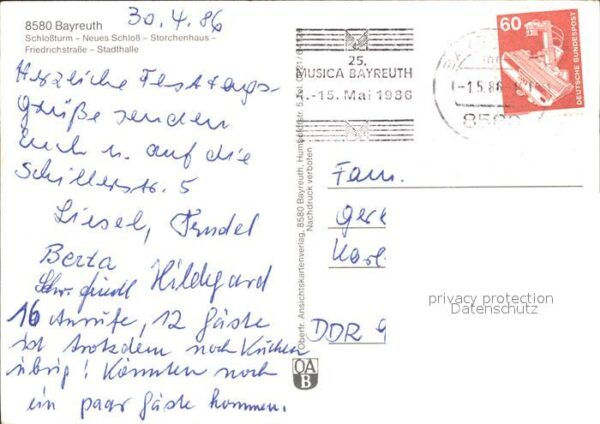 30.4.86
8580 Bayreuth
Schloßturm – Neues Schloß – Storchenhaus –
Friedrichstraße – Stadthalle
Herzliche Festtags-
grüße senden
Euch u. auf die
Schillerstr. 5
Liesel,
Berta
Hildegard
16 Anrufe, 12 Gäste
ist trotzdem noch Kuchen
übrig! Könnten noch
ein paar Gäste kommen.
Oberfr. Ansichtskartenverlag, 8580 Bayreuth, Humboldtstr. 5
Nachdruck verboten
OA
B
25.
MUSICA BAYREUTH
-15. Mai 1986
-1.5.86
60
DEUTSCHE BUNDESPOST
Fam.
Karl
DDR 9
privacy protection
Datenschutz